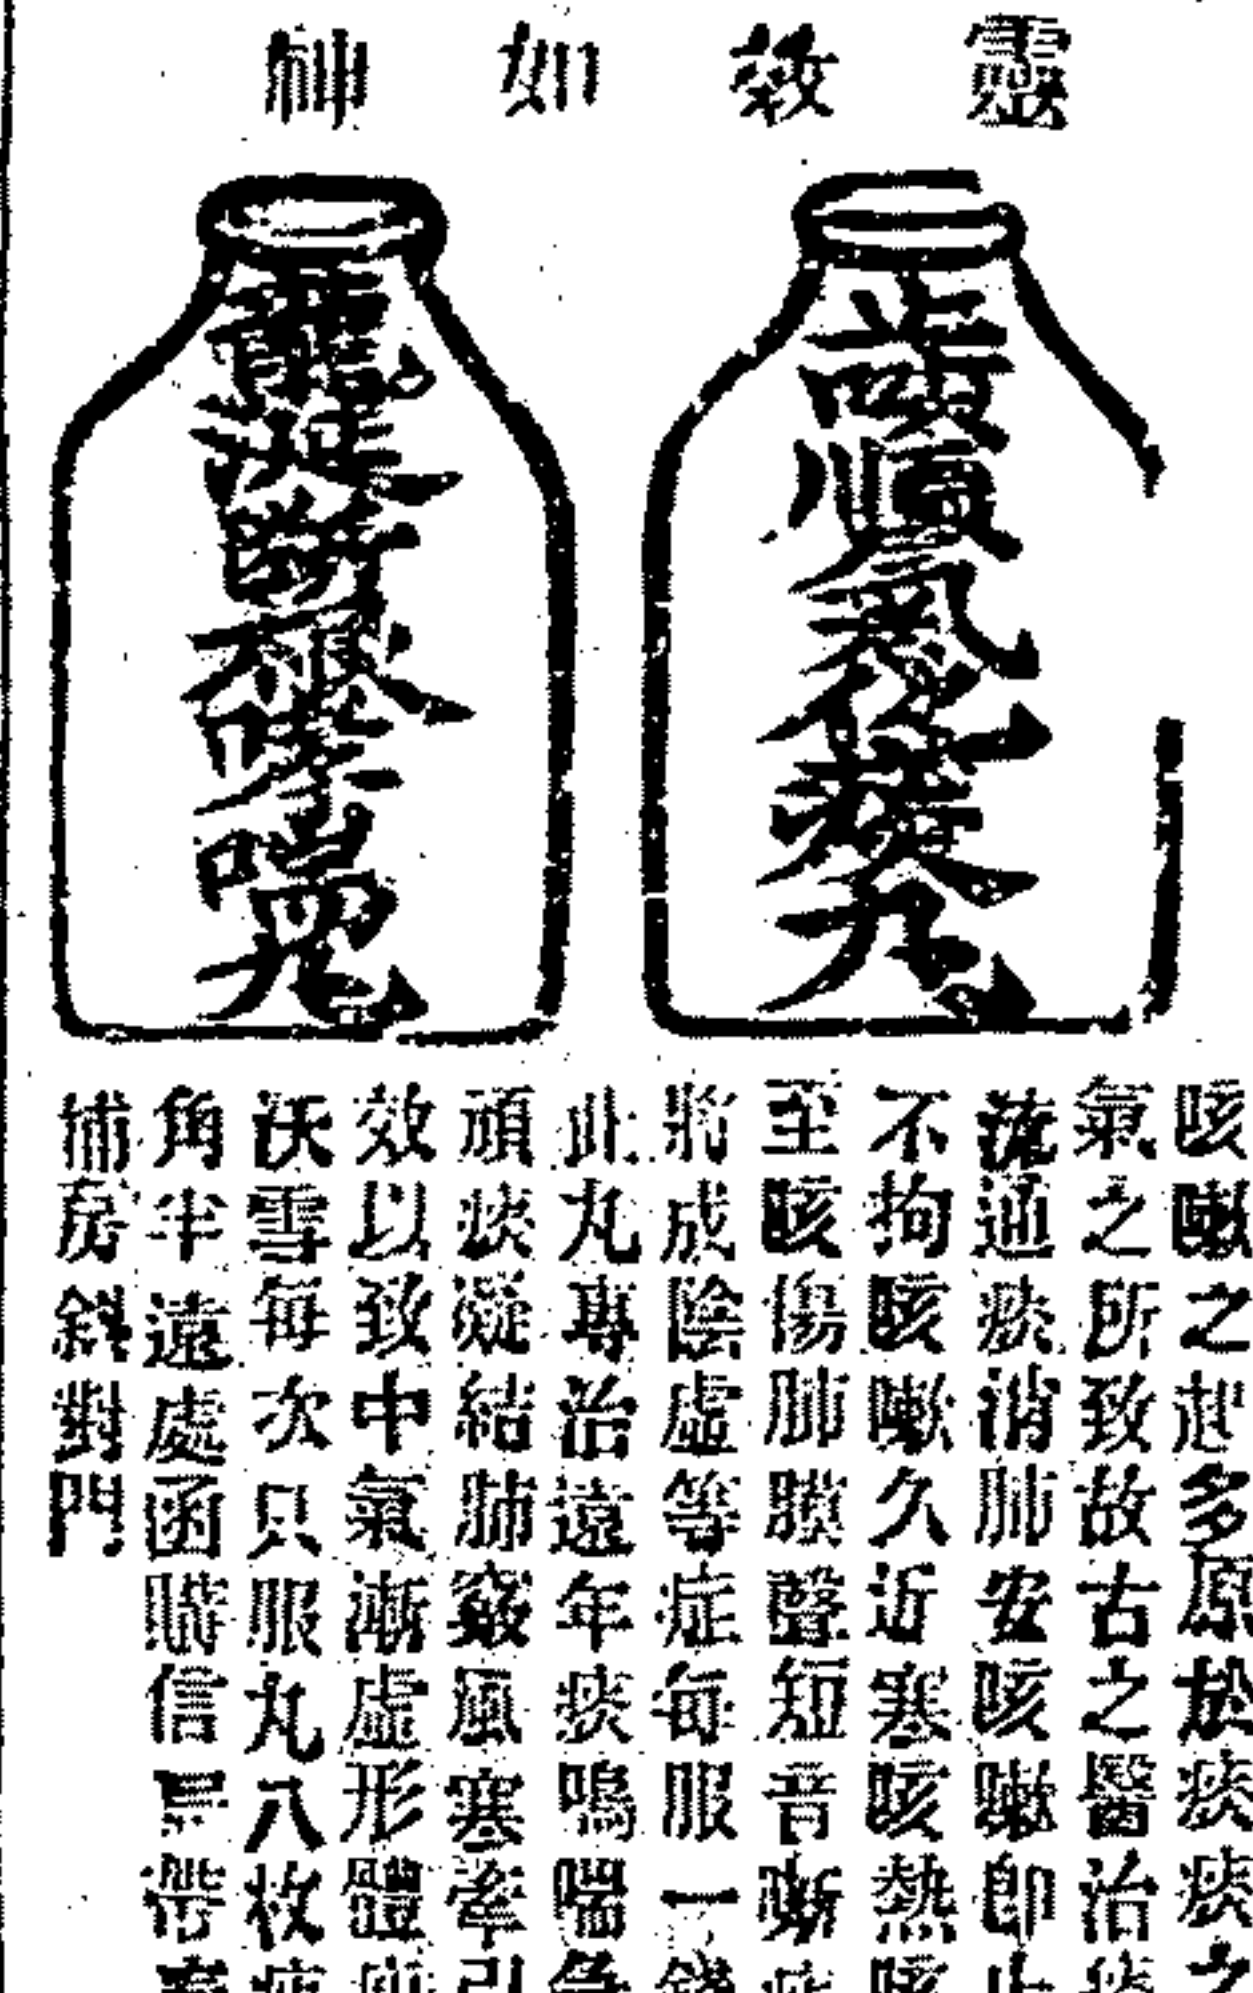 靈效如神
順氣
龍涎斷根哮喘丸
咳嗽之起多原於痰痰之
氣之所致故古之醫治痰
流通痰消肺安咳嗽即止
不拘咳嗽久近寒咳熱咳
至咳傷肺膜聲短音嘶
將成陰虛等症每服一錢
此丸專治遠年痰鳴喘急
頑痰凝結肺竅風寒牽引
效以致中氣漸虛形體
沃雪每次只服丸八枚
角半遠處函購信
捕房斜對門